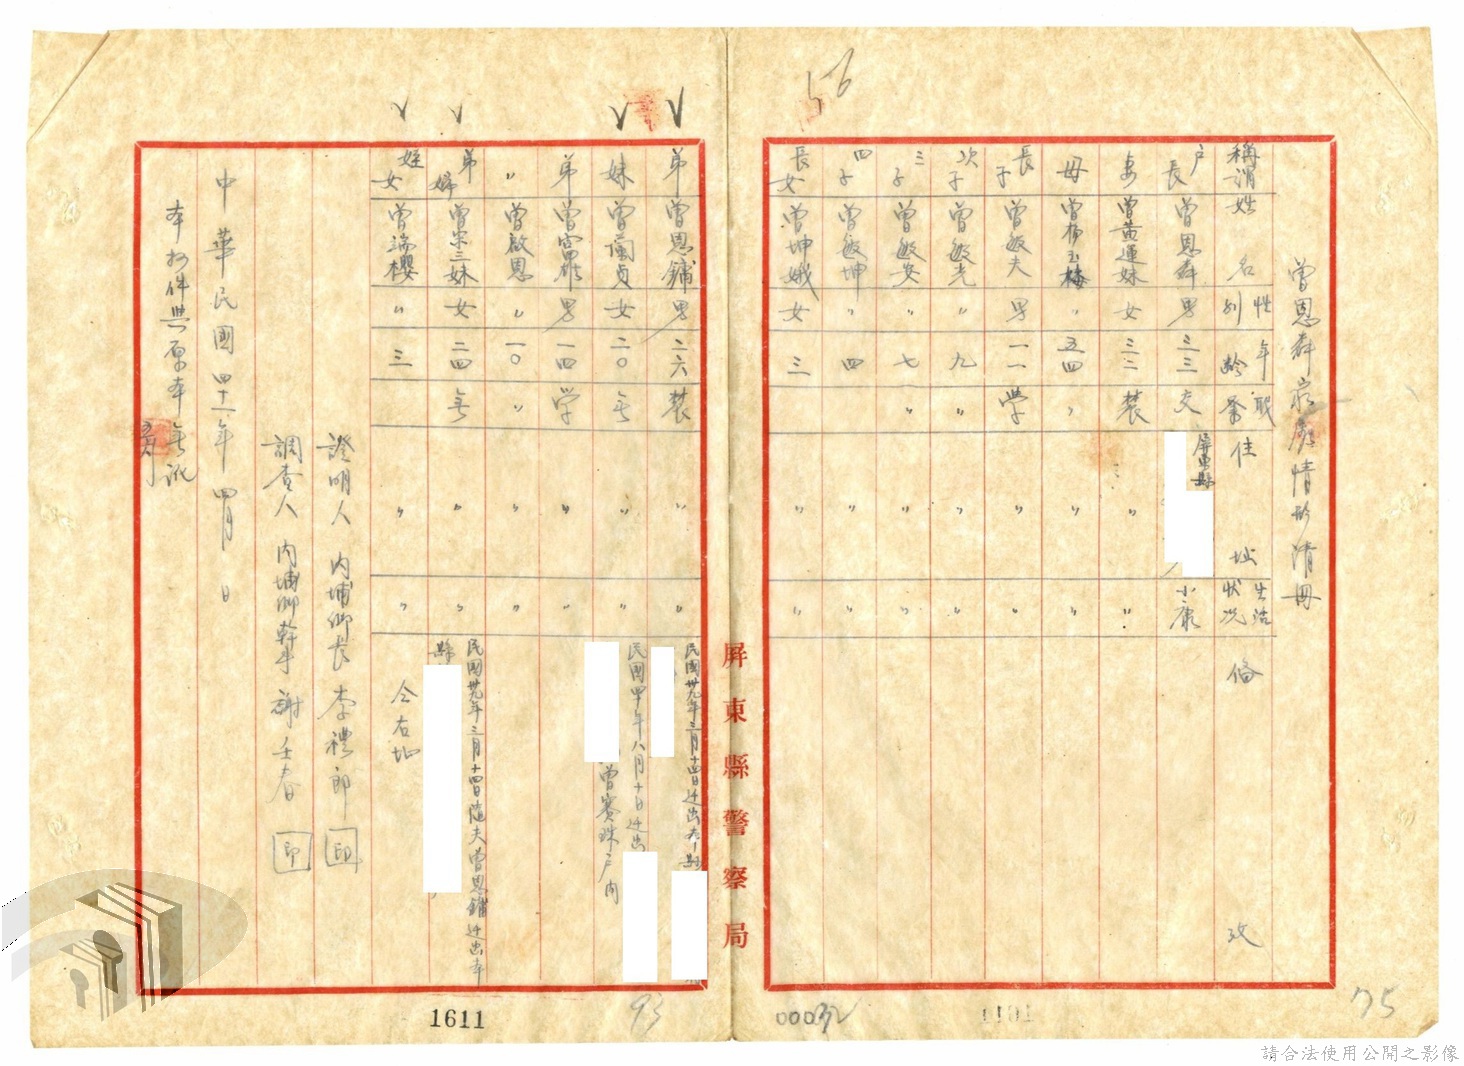 56
曾恩舜家庭情形清冊
稱謂 姓名 性別 年齡 職業 住址 生活狀況 備攷
戶長 曾恩舜 男 三三 交 屏東縣 小康
妻 曾黃運妹 女 三二 裝 〃 〃
母 曾楊玉梅 〃 五四 〃 〃 〃
長子 曾敏夫 男 一一 學 〃 〃
次子 曾敏光 〃 九 〃 〃 〃
三子 曾敏英 〃 七 〃 〃 〃
四子 曾敏坤 〃 四 〃 〃
長女 曾坤娥 女 三 〃 〃
屏東縣警察局
弟 曾恩鏞 男 二六 裝 〃 〃 民國卅九年三月十四日迁出本縣
妹 曾蘭貞 女 二〇 無 〃 〃 民國四十年八月十日迁出 曾賽珠戶內
弟 曾富 男 一四 學 〃 〃
〃 曾啟恩 〃 一〇 〃 〃 〃
弟婦 曾宋三妹 女 二四 無 〃 〃 民國卅九年三月十四日隨夫曾恩鏞迁出本縣
姪女 曾瑞櫻 〃 三 〃 〃 仝右址
證明人 內埔鄉長 李禮郎 印
調查人 內埔鄉幹事 謝壬春 印
中華民國四十一年四月 日
本抄件與原本無訛
五月
1611
93
00032
1101
75
請合法使用公開之影像